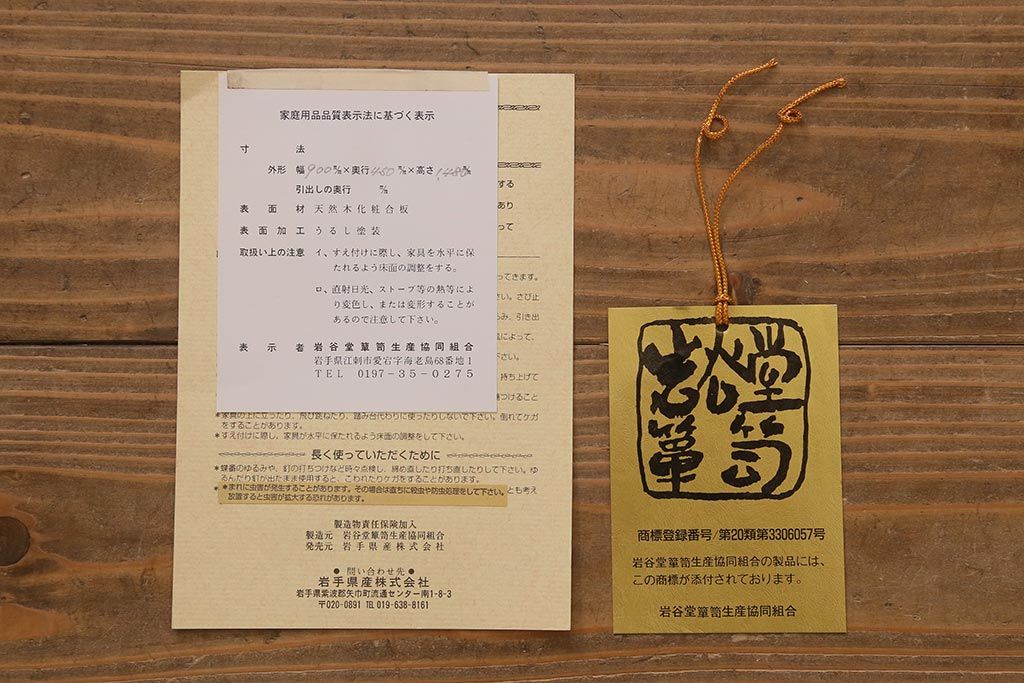 家庭用品品質表示法に基づく表示
寸 法
外形 幅900㎜×奥行450㎜×高さ1,480㎜
引出しの奥行 ㎜
表面材 天然木化粧合板
表面加工 うるし塗装
取扱い上の注意 イ、すえ付けに際し、家具を水平に保
たれるよう床面の調整をする。
ロ、直射日光、ストーブ等の熱等によ
り変色し、または変形することが
あるので注意して下さい。
表示者 岩谷堂簞笥生産協同組合
岩手県江刺市愛宕字海老島68番地1
TEL 0197-35-0275
する
あり
って
ってきます。
さい。さび止
るみ、引き出
によって、
さい。
持ち上げて
つけること
*家具の上に立ったり、飛び跳ねたり、踏み台代わりに使ったりしないで下さい。倒れてケガ
をすることがあります。
*すえ付けに際し、家具が水平に保たれるよう床面の調整をして下さい。
長く使っていただくために
*蝶番のゆるみや、釘の打ちつけなど時々点検し、締め直したり打ち直したりして下さい。ゆ
るんだり釘が出たまま使用すると、こわれたりケガをすることがあります。
*まれに虫害が発生することがあります。その場合は直ちに殺虫や防虫処理をして下さい。
とも考え
放置すると虫害が拡大する恐れがあります。
製造物責任保険加入
製造元 岩谷堂簞笥生産協同組合
発売元 岩手県産株式会社
● 問い合わせ先 ●
岩手県産株式会社
岩手県紫波郡矢巾町流通センター南1-8-3
〒020-0891 TEL 019-638-8161
岩谷堂
簞笥
商標登録番号/第20類第3306057号
岩谷堂簞笥生産協同組合の製品には、
この商標が添付されております。
岩谷堂簞笥生産協同組合